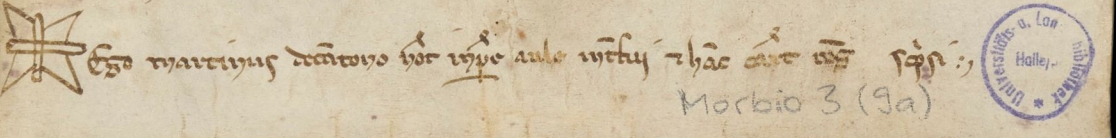 Ego martinus decantono not imper aule intfui & hac cart rog scpsi :,
Morbio 3 (9a)
Universitäts- u. Lan bibliothek
Halle/